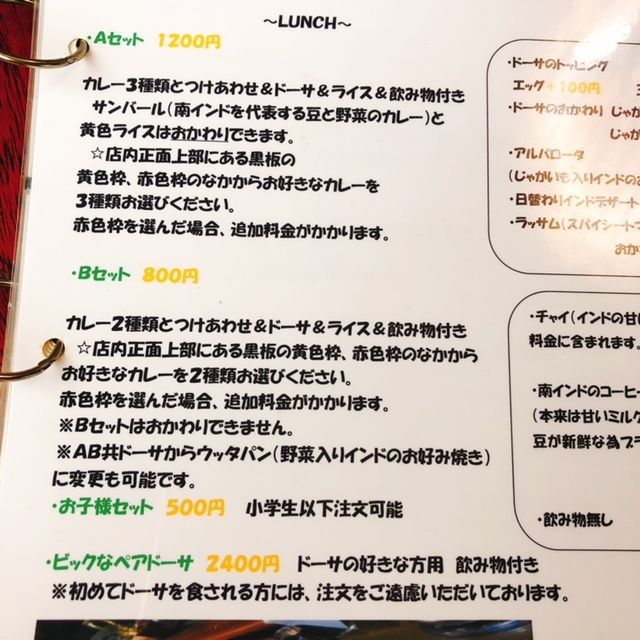 ～LUNCH～
・Aセット 1200円
カレー3種類とつけあわせ＆ドーサ＆ライス＆飲み物付き
サンバール（南インドを代表する豆と野菜のカレー）と
黄色ライスはおかわりできます。
☆店内正面上部にある黒板の
黄色枠、赤色枠のなかからお好きなカレーを
3種類お選びください。
赤色枠を選んだ場合、追加料金がかかります。
・Bセット 800円
カレー2種類とつけあわせ＆ドーサ＆ライス＆飲み物付き
☆店内正面上部にある黒板の黄色枠、赤色枠のなかから
お好きなカレーを2種類お選びください。
赤色枠を選んだ場合、追加料金がかかります。
※Bセットはおかわりできません。
※AB共ドーサからウッタパン（野菜入りインドのお好み焼き）
に変更も可能です。
・お子様セット 500円 小学生以下注文可能
・ビックなペアドーサ 2400円 ドーサの好きな方用 飲み物付き
※初めてドーサを食される方には、注文をご遠慮いただいております。
・ドーサのトッピング
エッグ＋100円
・ドーサのおかわり じゃが
じゃが
・アルパロータ
（じゃがいも入りインドのお
・日替わりインドデザート
・ラッサム（スパイシートマ
おか
・チャイ（インドの甘い
料金に含まれます。
・南インドのコーヒー
（本来は甘いミルク
豆が新鮮な為ブラ
・飲み物無し